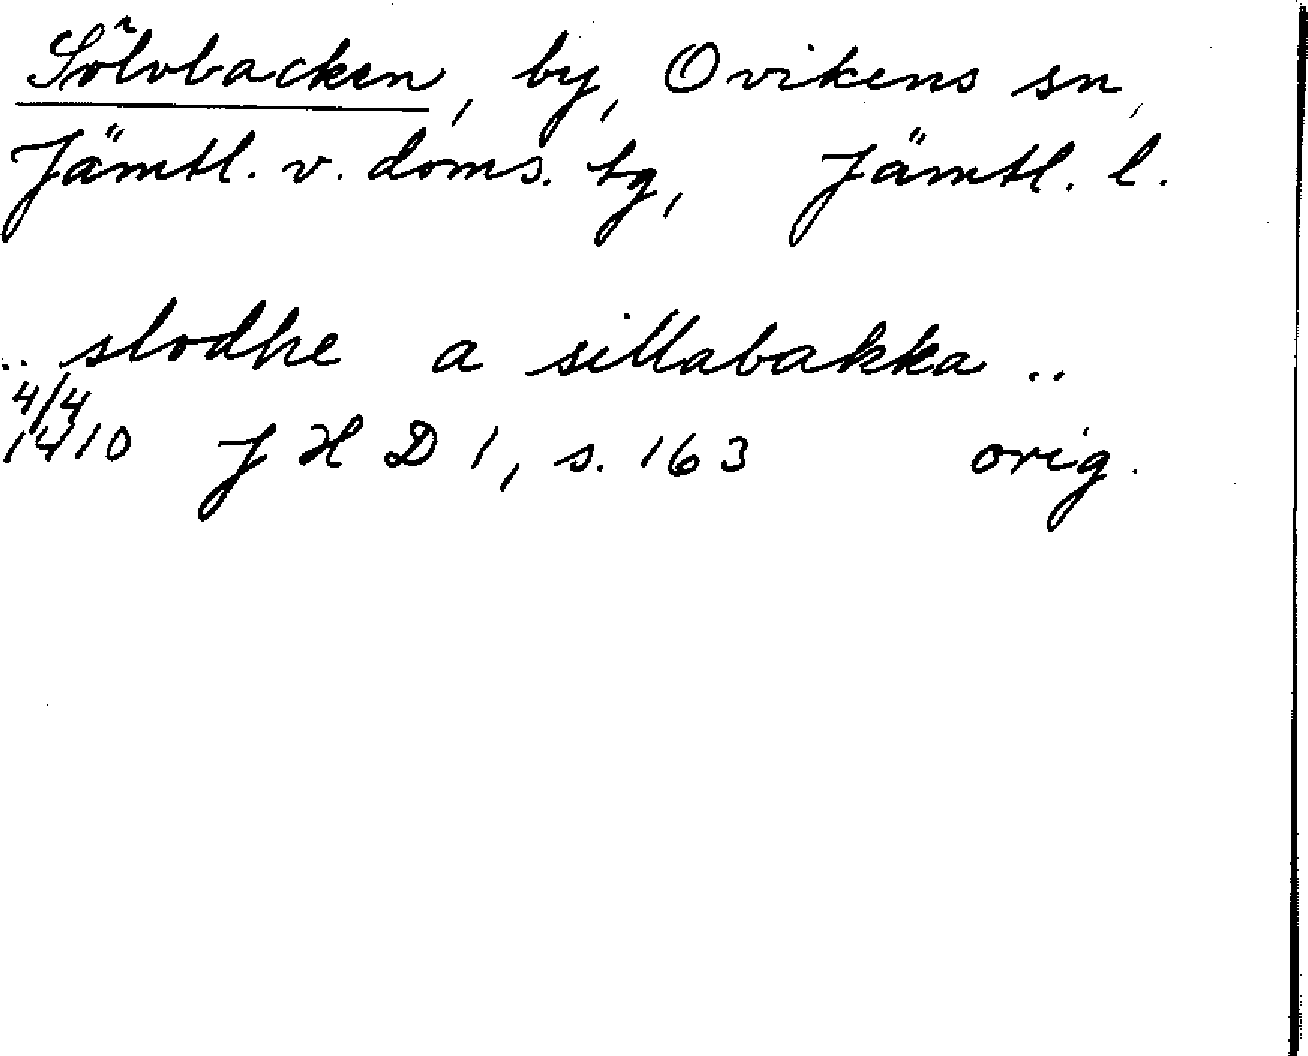 Sölvbacken, by, Ovikens sn,
Jämtl. v. doms. tg, Jämtl. l.
.. slodhe a sillabakka ..
4/4
1410 J H D 1, s. 163 orig.